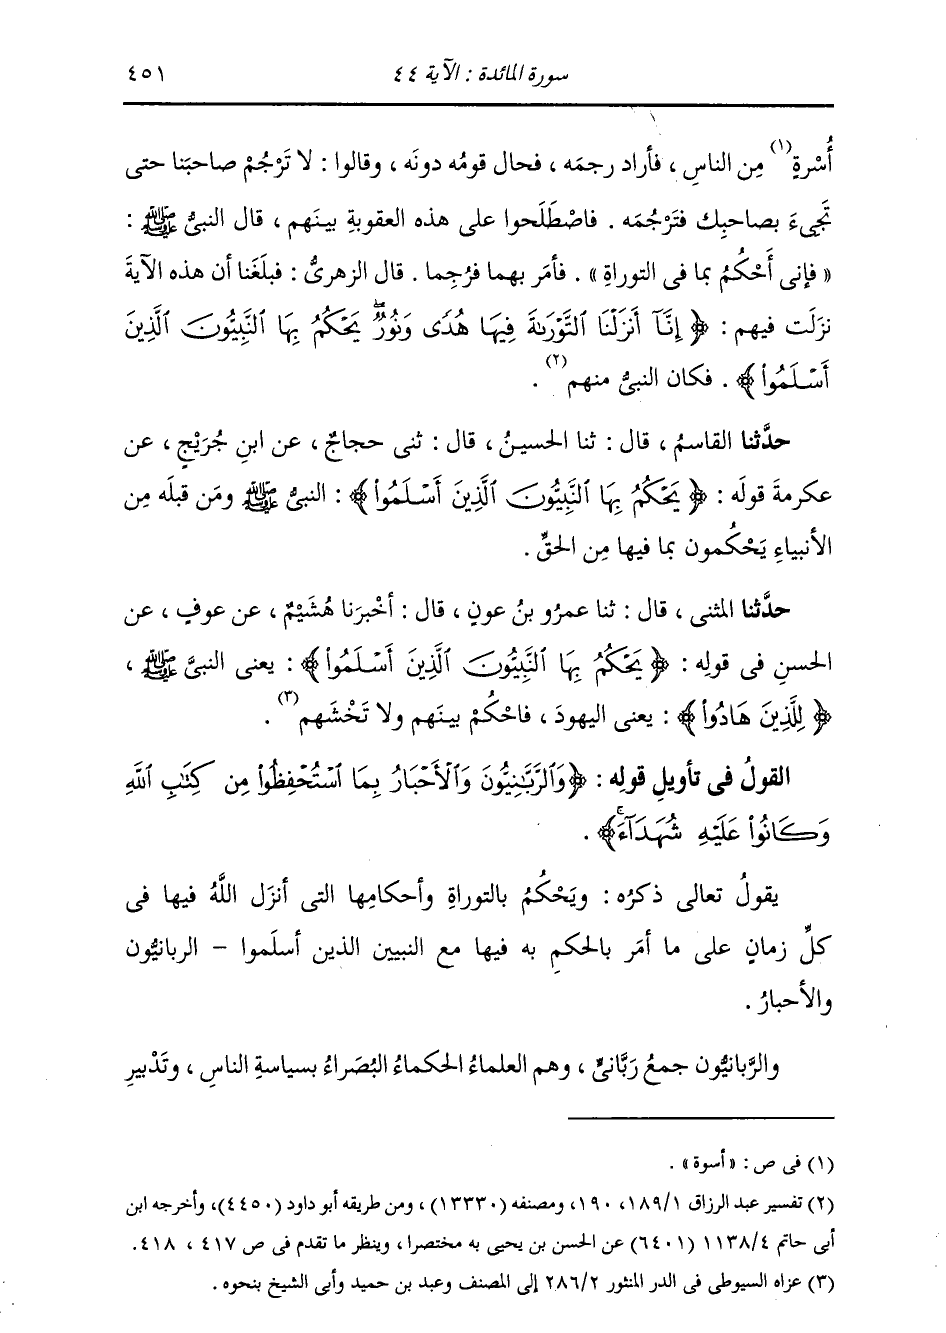 سورة المائدة : الآية ٤٤
٤٥١
أُسْرةٍ(١) مِن الناسِ ، فأراد رجمَه ، فحال قومُه دونَه ، وقالوا : لا تَرْجُمْ صاحبَنا حتى
تَجِىءَ بصاحبِك فتَرْجُمَه . فاصْطَلَحوا على هذه العقوبةِ بينَهم ، قال النبىُّ ﷺ :
« فإنى أَحْكُمُ بما فى التوراةِ » . فأمَر بهما فرُجِما . قال الزهرىُّ : فبلَغَنا أن هذه الآيةَ
نزَلَت فيهم : ﴿ إِنَّآ أَنزَلْنَا ٱلتَّوْرَىٰةَ فِيهَا هُدًى وَنُورٌۚ يَحْكُمُ بِهَا ٱلنَّبِيُّونَ ٱلَّذِينَ
أَسْلَمُوا۟ ﴾ . فكان النبىُّ منهم(٢) .
حدَّثنا القاسمُ ، قال : ثنا الحسينُ ، قال : ثنى حجاجٌ ، عن ابنِ جُرَيْجٍ ، عن
عكرمةَ قولَه : ﴿ يَحْكُمُ بِهَا ٱلنَّبِيُّونَ ٱلَّذِينَ أَسْلَمُوا۟ ﴾ : النبىُّ ﷺ ومَن قبلَه مِن
الأنبياءِ يَحْكُمون بما فيها مِن الحقِّ .
حدَّثنا المثنى ، قال : ثنا عمرُو بنُ عونٍ ، قال : أخْبرَنا هُشَيْمٌ ، عن عوفٍ ، عن
الحسنِ فى قولِه : ﴿ يَحْكُمُ بِهَا ٱلنَّبِيُّونَ ٱلَّذِينَ أَسْلَمُوا۟ ﴾ : يعنى النبىَّ ﷺ ،
﴿ لِلَّذِينَ هَادُوا۟ ﴾ : يعنى اليهودَ ، فاحْكُمْ بينَهم ولا تَخْشَهم(٣) .
القولُ فى تأويلِ قولِه : ﴿ وَٱلرَّبَّٰنِيُّونَ وَٱلْأَحْبَارُ بِمَا ٱسْتُحْفِظُوا۟ مِن كِتَٰبِ ٱللَّهِ
وَكَانُوا۟ عَلَيْهِ شُهَدَآءَۚ ﴾ .
يقولُ تعالى ذكرُه : ويَحْكُمُ بالتوراةِ وأحكامِها التى أنزَل اللَّهُ فيها فى
كلِّ زمانٍ على ما أمَر بالحكمِ به فيها مع النبيين الذين أسلَموا – الربانيُّون
والأحبارُ .
والرَّبانيُّون جمعُ رَبَّانىٍّ ، وهم العلماءُ الحكماءُ البُصَراءُ بسياسةِ الناسِ ، وتَدْبيرِ
(١) فى ص : « أسوة » .
(٢) تفسير عبد الرزاق ١/ ١٨٩، ١٩٠، ومصنفه (١٣٣٣٠) ، ومن طريقه أبو داود (٤٤٥٠)، وأخرجه ابن
أبى حاتم ٤/ ١١٣٨ (٦٤٠١) عن الحسن بن يحيى به مختصرا ، وينظر ما تقدم فى ص ٤١٧ ، ٤١٨.
(٣) عزاه السيوطى فى الدر المنثور ٢/ ٢٨٦ إلى المصنف وعبد بن حميد وأبى الشيخ بنحوه .